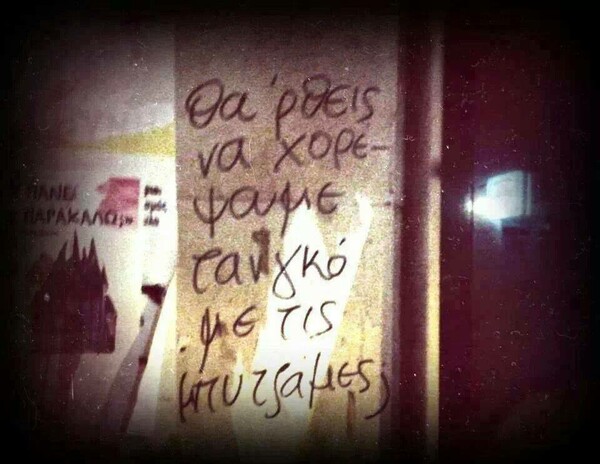 Θα 'ρθεις
να χορε-
ψουμε
τανγκό
με τις
μπυτζάμες;
ΠΑΡΑΚΑΛΩ;»